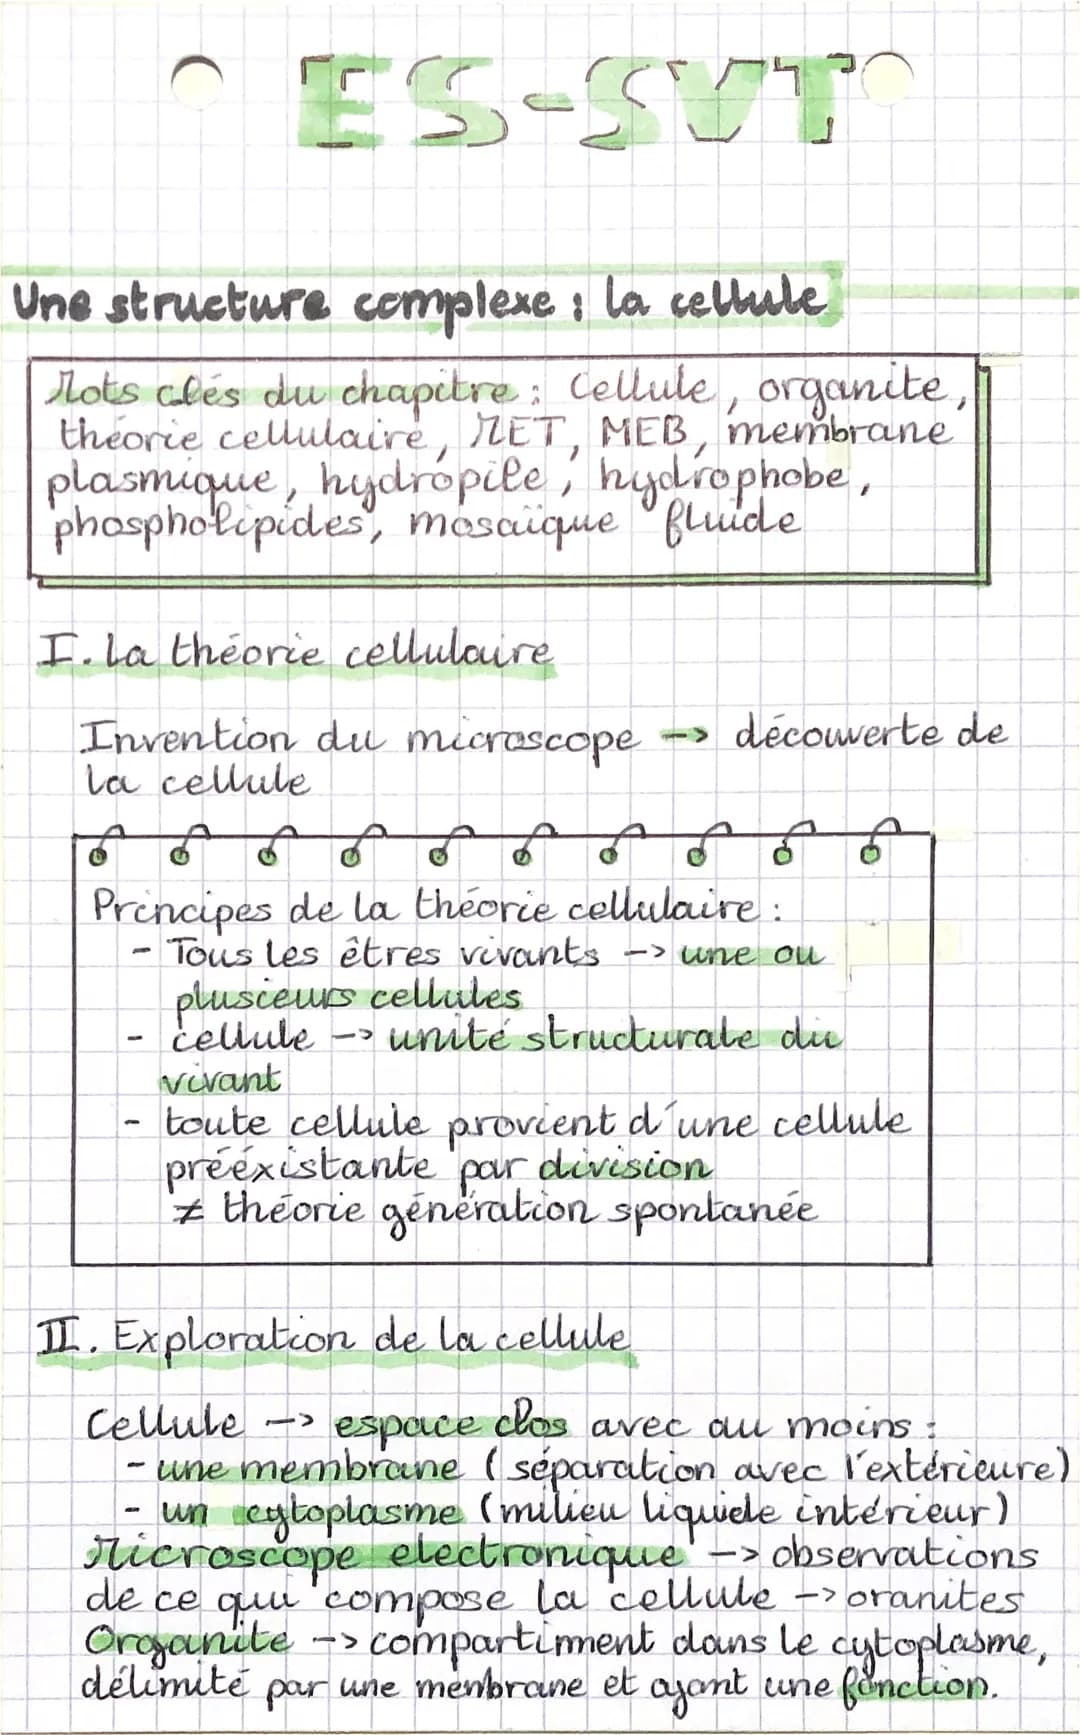 ES-SVT
Une structure complexe : la cellule
Mots clés du chapitre : Cellule, organite,
théorie cellulaire, MET, MEB, membrane
plasmique, hydropile, hydrophobe,
phospholipides, mosaïque fluide
I. La théorie cellulaire
Invention du microscope -> découverte de
la cellule
Principes de la théorie cellulaire :
- Tous les êtres vivants -> une ou
plusieurs cellules
- cellule -> unité structurale du
vivant
- toute cellule provient d'une cellule
prééxistante par division
≠ théorie génération spontanée
II. Exploration de la cellule
Cellule -> espace clos avec au moins :
- une membrane (séparation avec l'extérieure)
- un cytoplasme (milieu liquide intérieur)
Microscope electronique -> observations
de ce qui compose la cellule -> oranites
Organite -> compartiment dans le cytoplasme,
délimité par une menbrane et ayant une fonction.